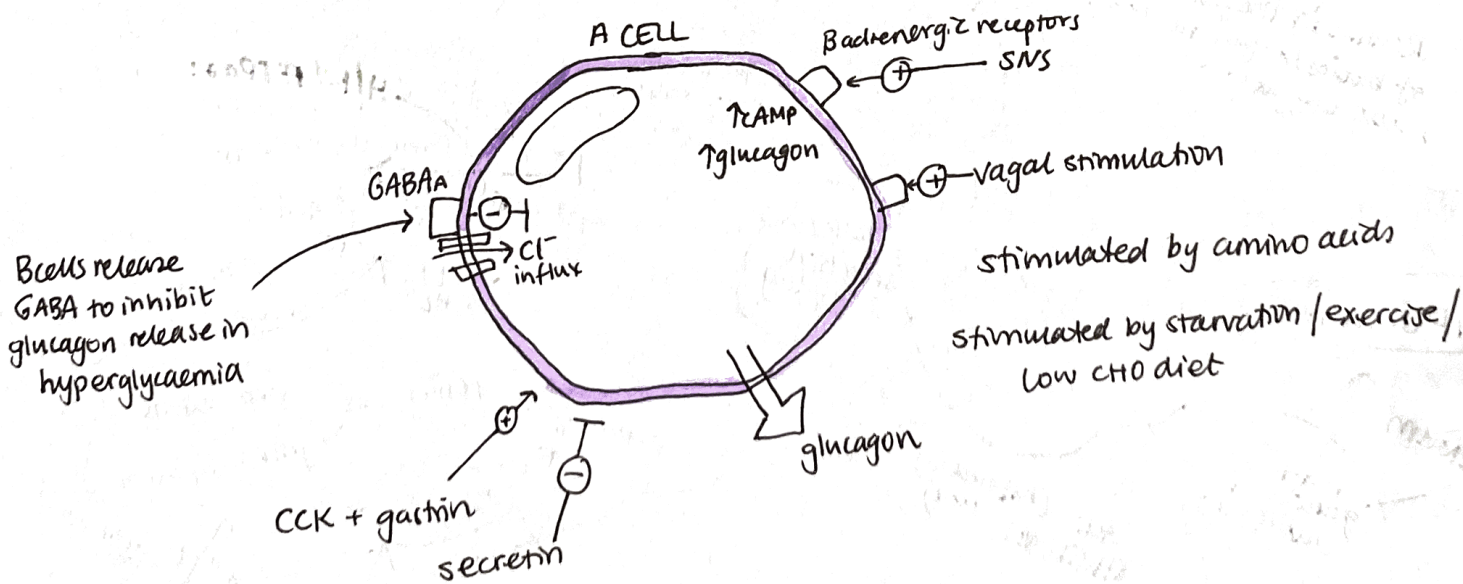 A CELL
Badrenergic receptors
SNS
↑cAMP
↑glucagon
+
+
vagal stimulation
GABAA
-
Cl⁻
influx
Bcells release
GABA to inhibit
glucagon release in
hyperglycaemia
stimulated by amino acids
stimulated by starvation/exercise/
low CHO diet
glucagon
+
-
CCK + gastrin
secretin